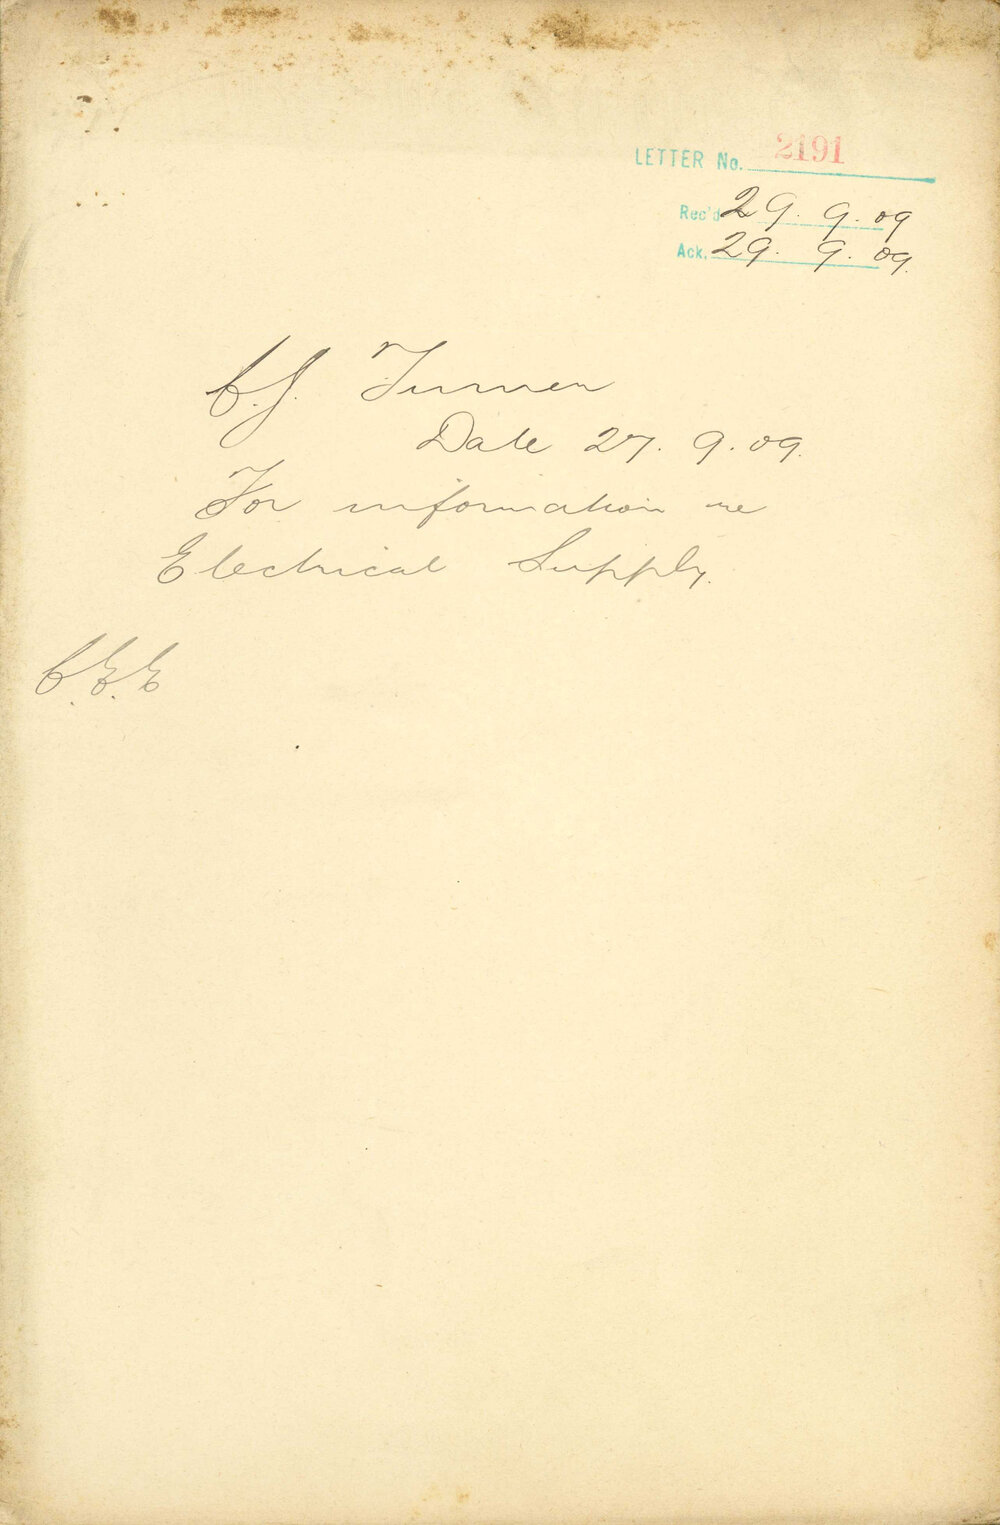 LETTER No. 2191
Rec'd 29. 9. 09
Ack. 29. 9. 09.
C. J. Turner
Date 27. 9. 09.
For information re
Electrical Supply.
C. E. E